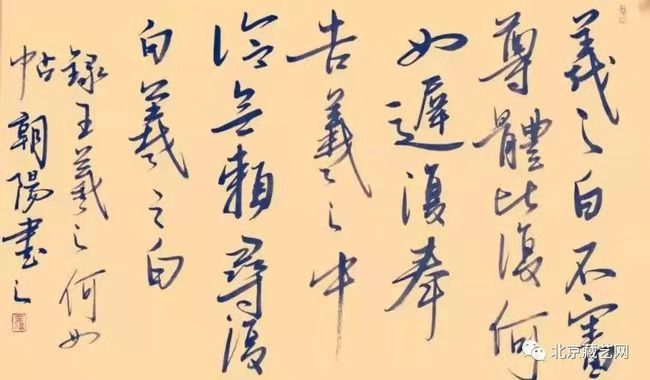 羲之白不審
尊體比復何
如遲復奉
告羲之中
冷無賴尋復
白羲之白
録王羲之何如
帖朝陽書之
北京藏艺网